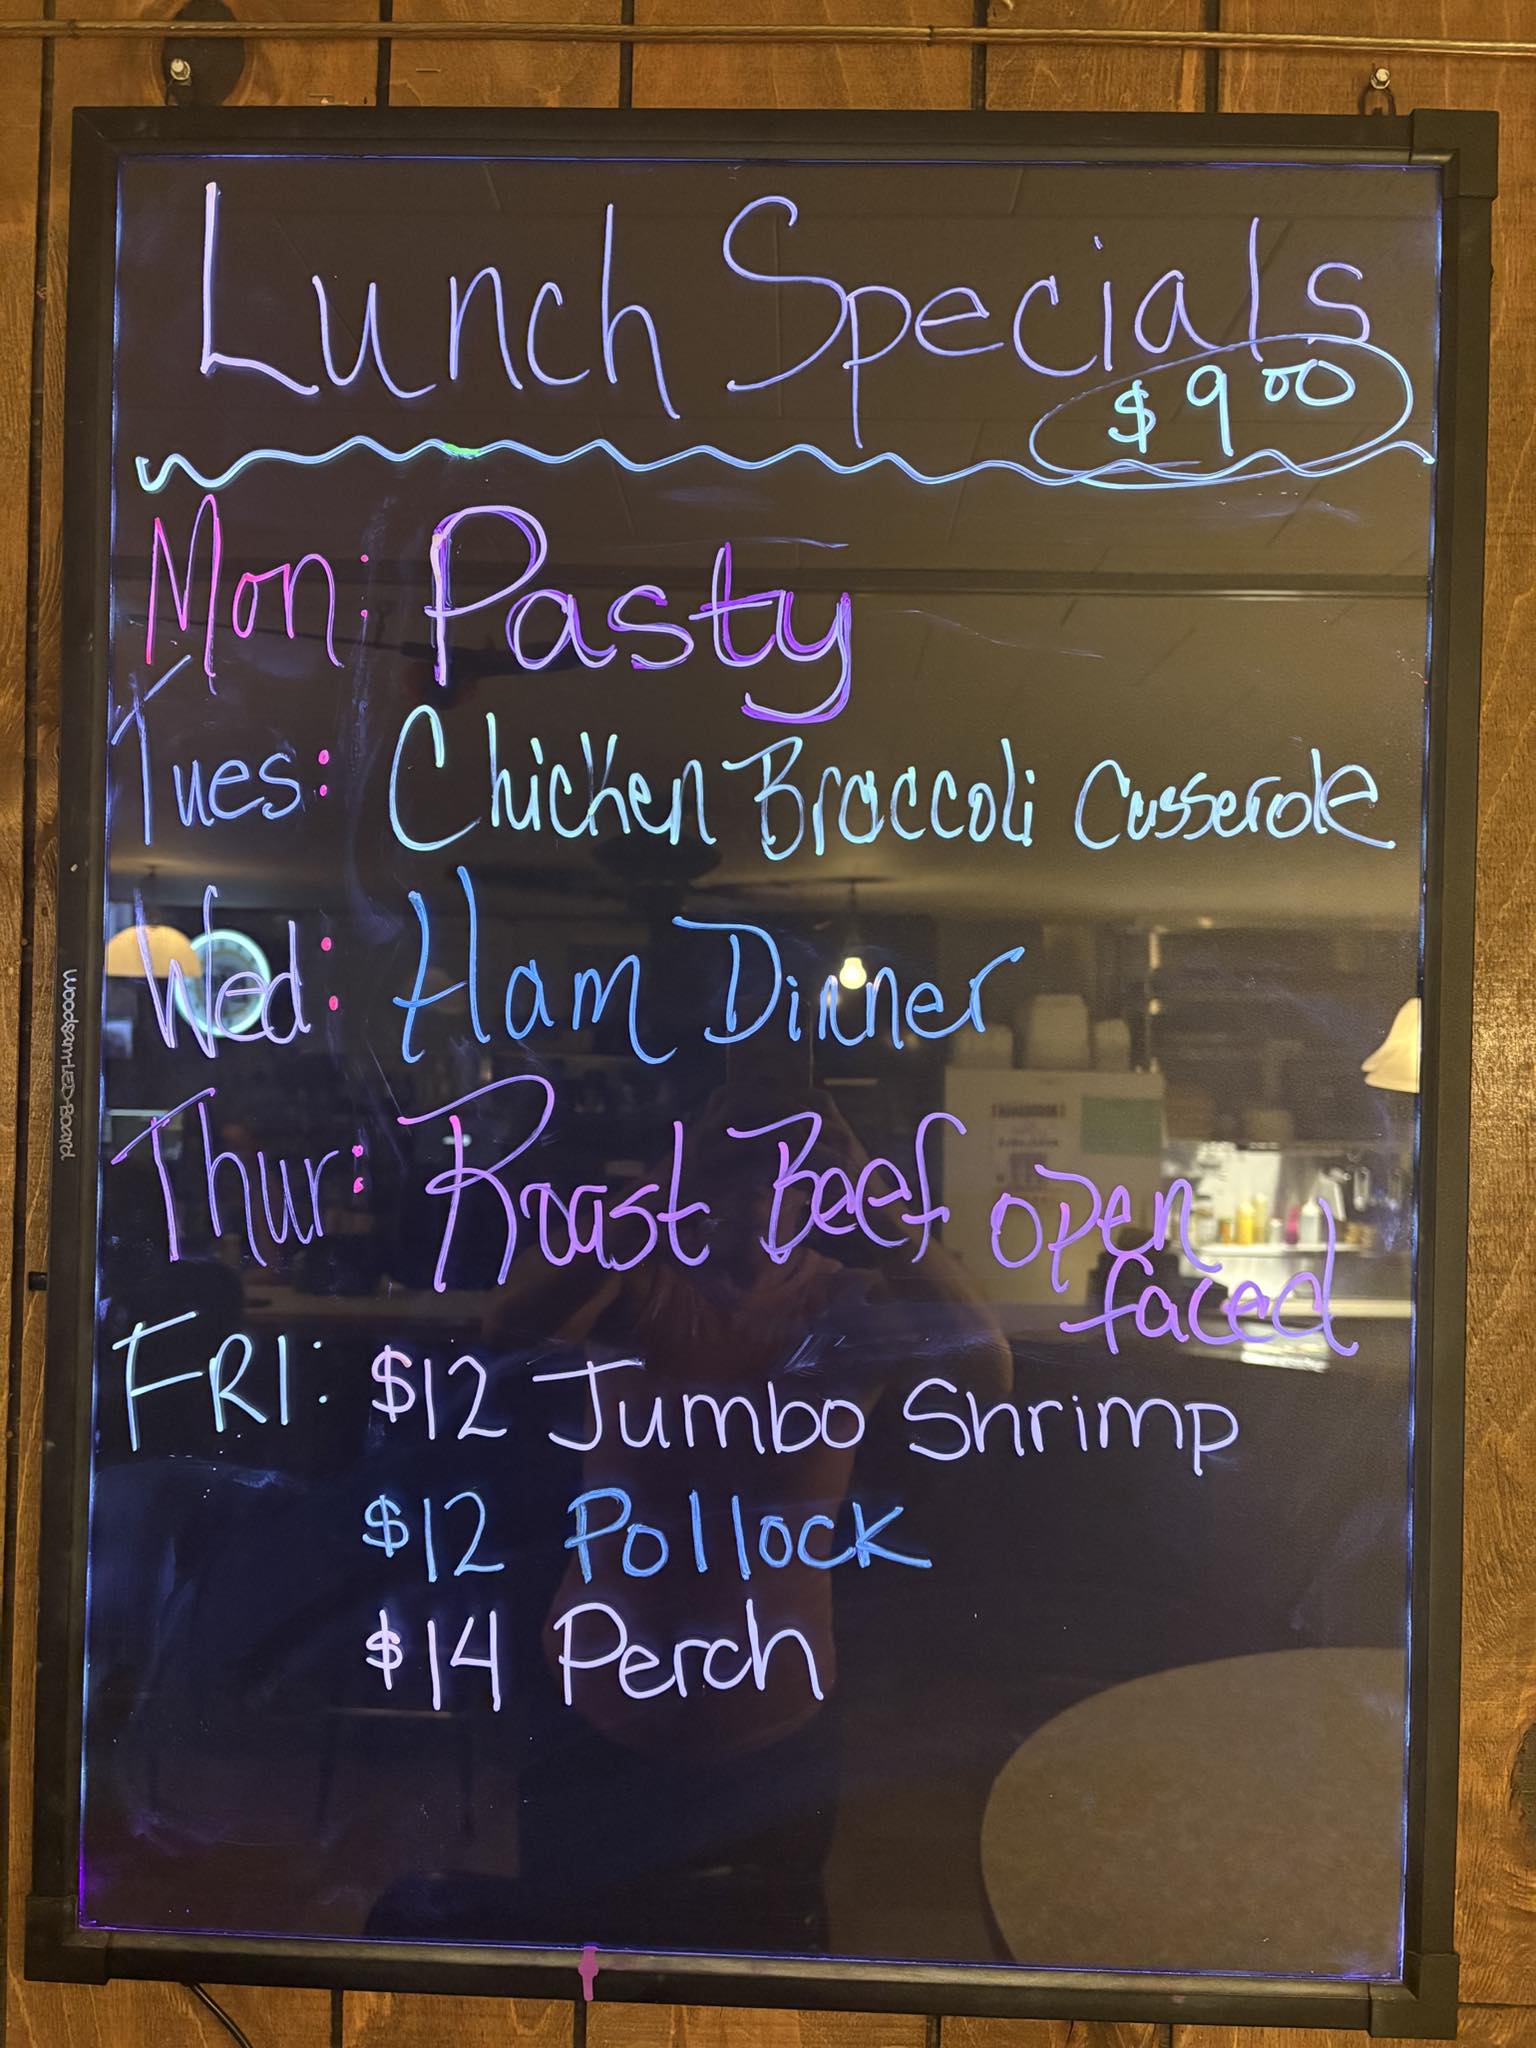 Lunch Specials
$9.00
Mon: Pasty
Tues: Chicken Broccoli Casserole
Wed: Ham Dinner
Thur: Roast Beef open
faced
FRI: $12 Jumbo Shrimp
$12 Pollock
$14 Perch
Woodsam LED Board